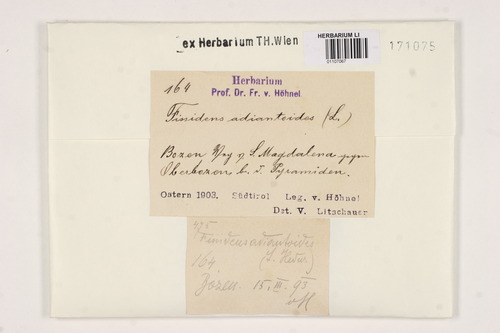 ex Herbarium TH.Wien
HERBARIUM LI
01107067
171075
Herbarium
Prof. Dr. Fr. v. Höhnel
164
Fissidens adiantoides (L.)
Bozen Weg v. S. Magdalena gegen
Oberbozen b. d. Pyramiden.
Ostern 1903. Südtirol Leg. v. Höhnel
Det. V. Litschauer
Fissidens adiantoides
164 (L. Hedw.)
Bozen 15. III. 93